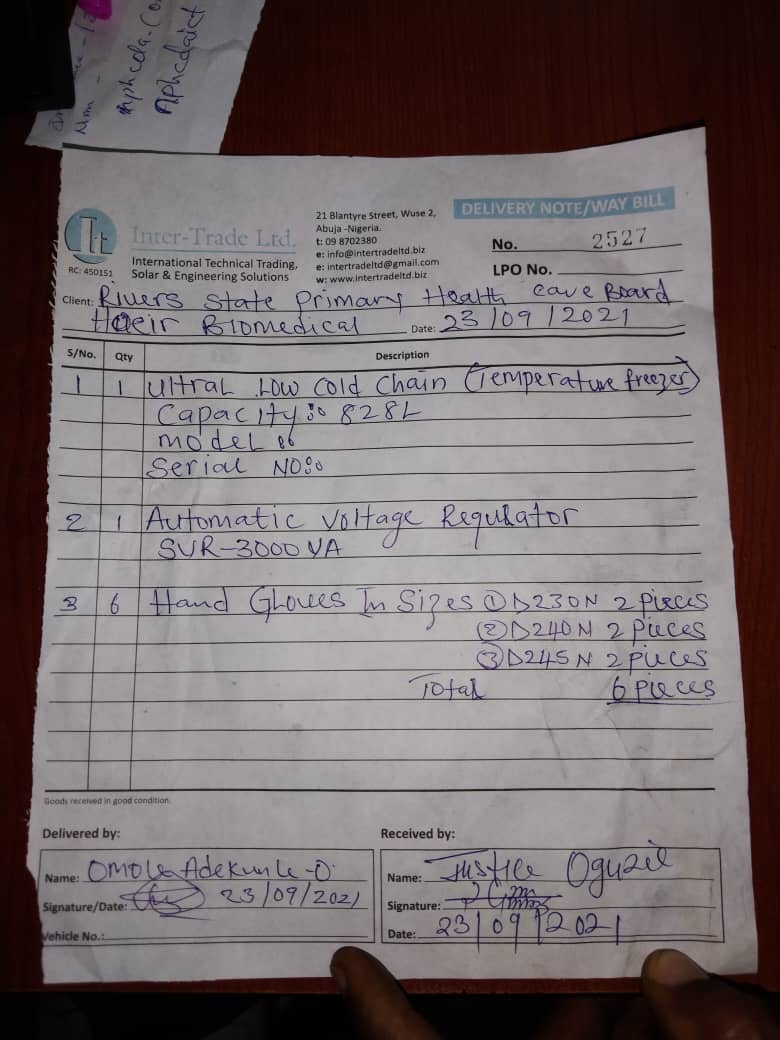 nphcda.co
nphcdaict
DELIVERY NOTE/WAY BILL
Inter-Trade Ltd.
International Technical Trading,
Solar & Engineering Solutions
RC: 450151
21 Blantyre Street, Wuse 2,
Abuja -Nigeria.
t: 09 8702380
e: info@intertradeltd.biz
e: intertradeltd@gmail.com
w: www.intertradeltd.biz
No. 2527
LPO No.
Client: Rivers State Primary Health care Board
Haeir Biomedical Date: 23/09/2021
S/No. Qty Description
1 1 Ultral Low Cold Chain (Temperature freezer)
Capacity: 828L
model:
Serial NO:
2 1 Automatic Voltage Regulator
SVR-3000VA
3 6 Hand Gloves In Sizes ① D230N 2 pieces
② D240N 2 pieces
③ D245N 2 pieces
Total 6 pieces
Goods received in good condition.
Delivered by:
Name: Omole Adekunle-O.
Signature/Date: 23/09/2021
Vehicle No.:
Received by:
Name: Justice
Signature:
Date: 23/09/2021